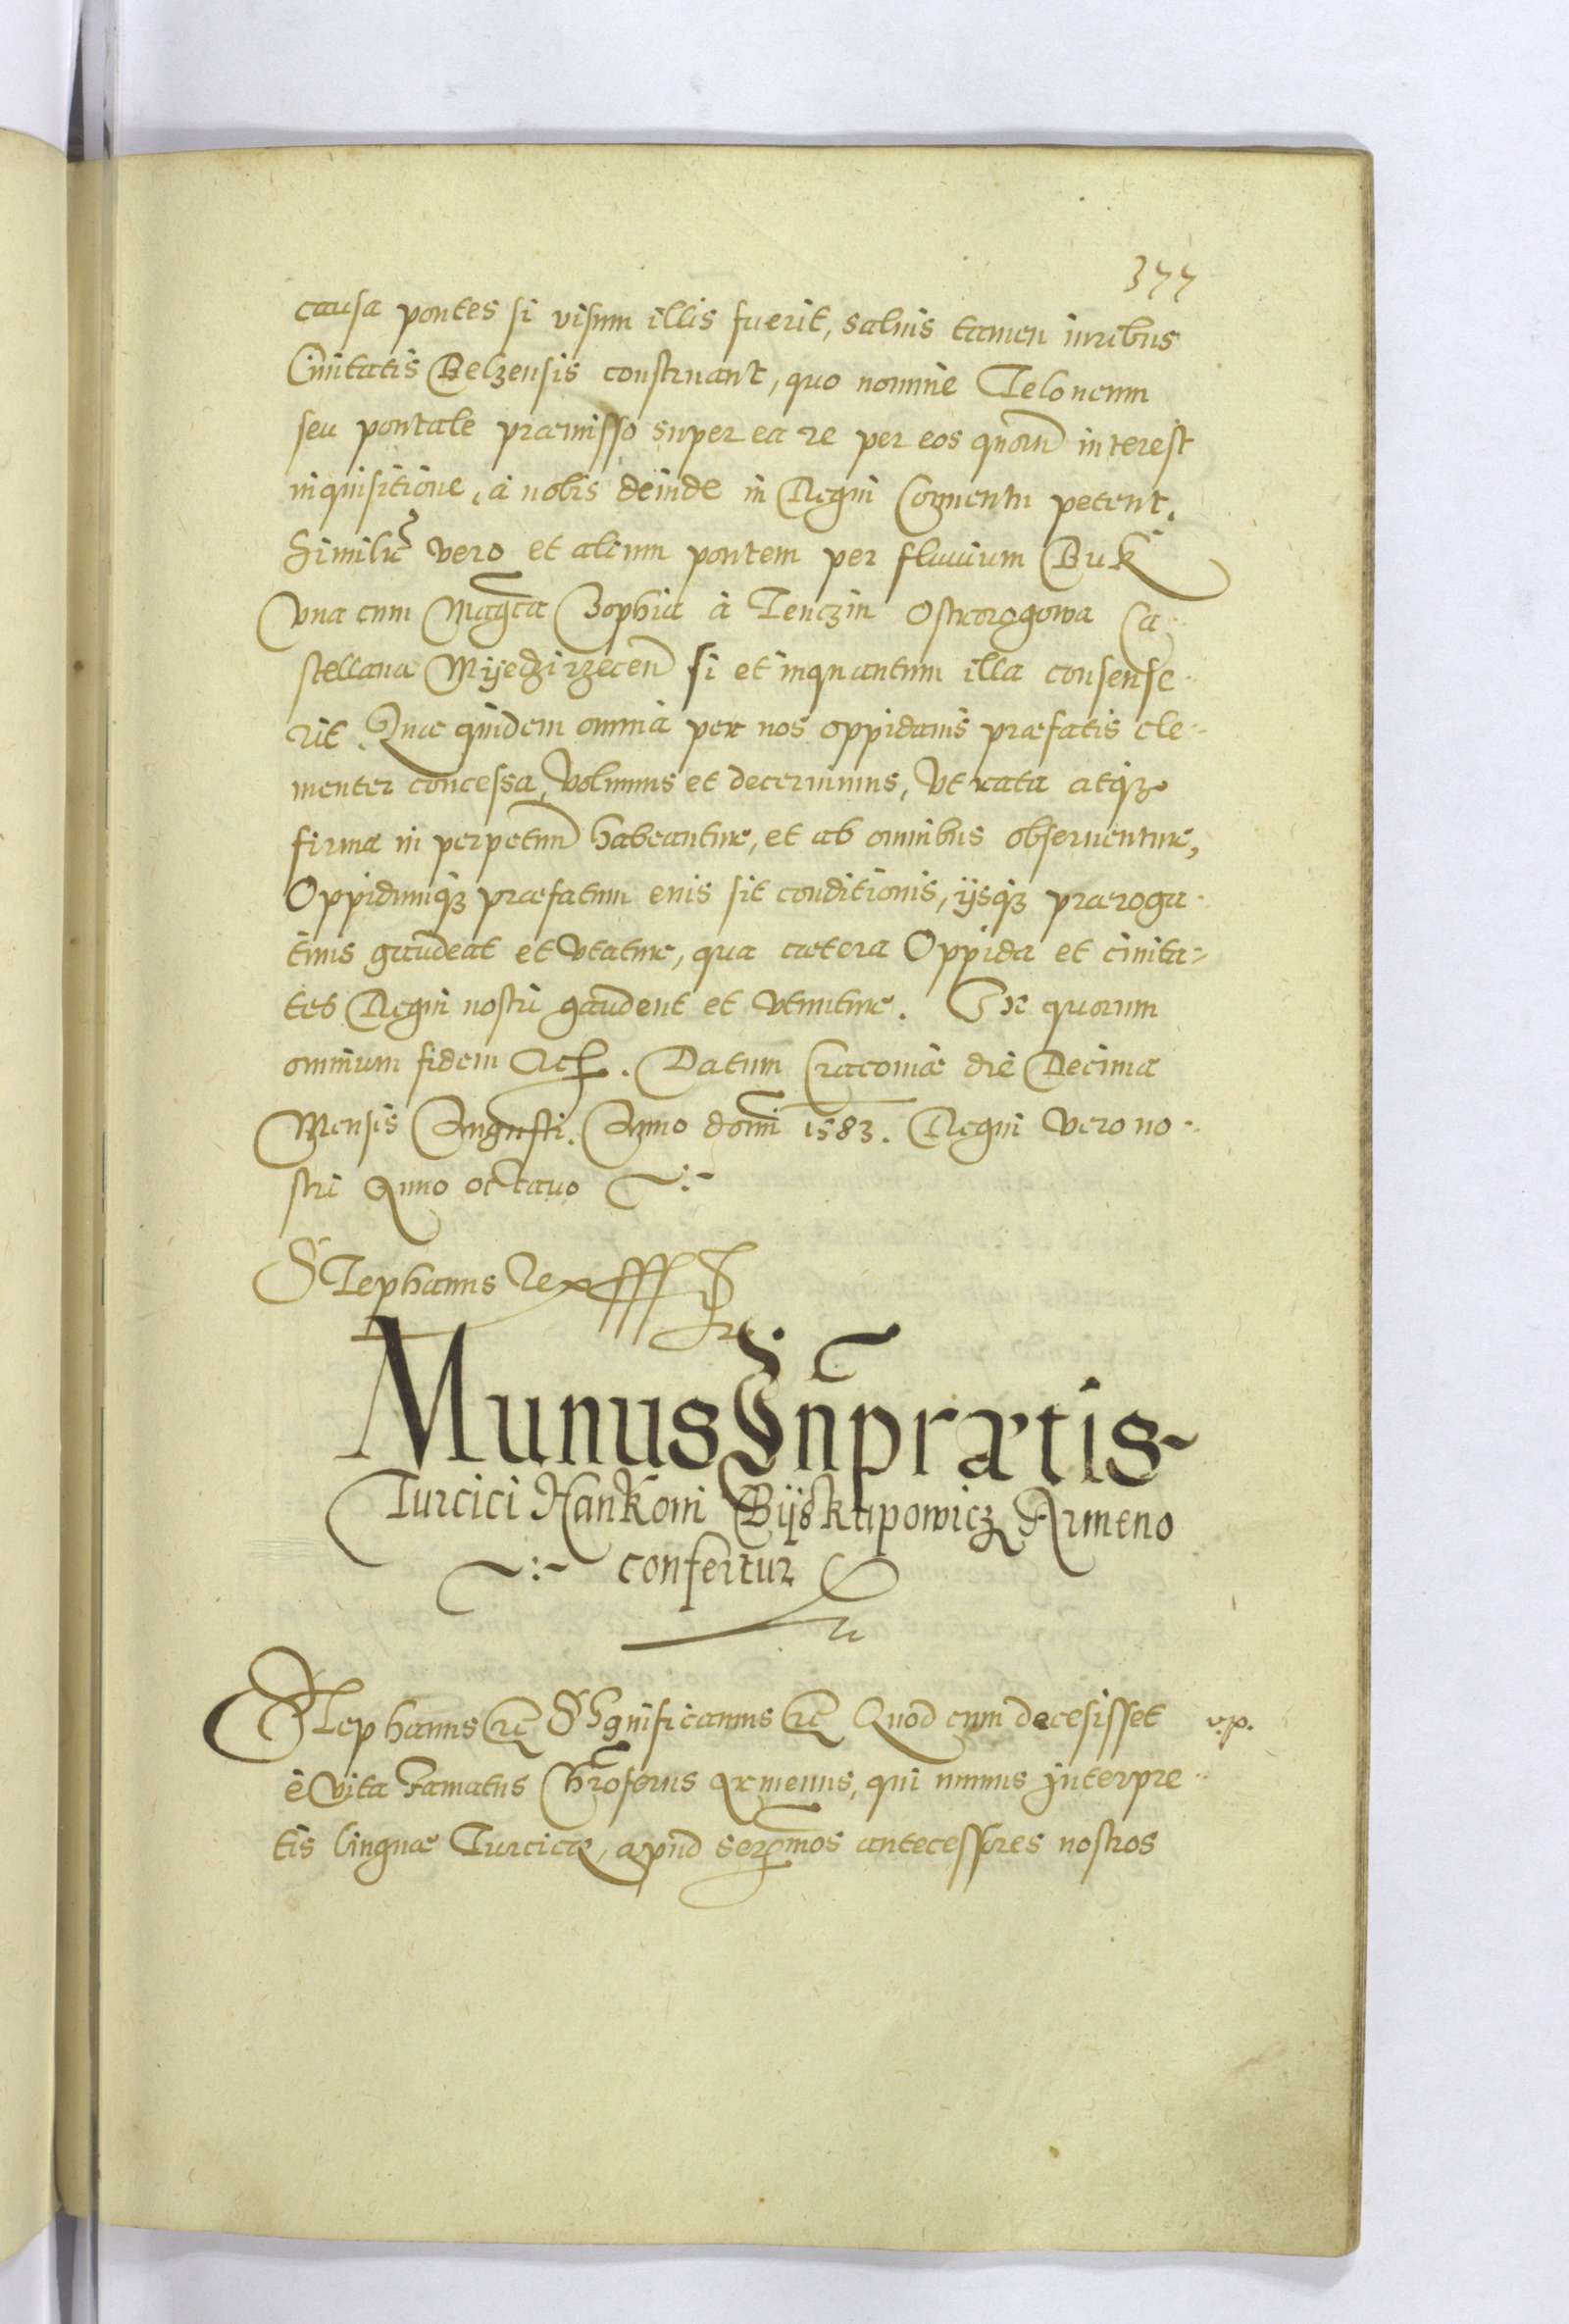 377
causa pontes si visum illis fuerit, saluis tamen iuribus
Ciuitatis Belzensis construant, quo nomine Teloneum
seu pontale præmisso super ea re per eos quorũ interest
inquisitione, à nobis deinde in Regni Conuentu petent.
Similiť vero et alium pontem per fluuium Buk
vna cum Magc̃a Zophia à Tenczin Ostrorogowa Ca-
stellana Myedzirzecen̄ si et inquantum illa consense-
rit. Quæ quidem omnia per nos oppidanis præfatis cle-
menter concessa, Volumus et decernimus, Vt rata atq₃
firma in perpetuũ habeantur, et ab omnibus obseruentur,
Oppidumq₃ præfatum euis sit conditionis, ijsq₃ præroga-
tiuis gaudeat et vtatur, qua cætera Oppida et ciuita-
tes Regni nostri gaudent et vtuntur. In quorum
omnium fidem Ac. Datum Cracouiæ die Decima
Mensis Augusti. Anno domĩ 1583. Regni Vero no-
stri Anno octauo
Stephanus Rex
Munus Inp̃rætis
Turcici Hankoni Bijskupowicz Armeno
confertur
Stephanus rc̃ Significamus rc̃ Quod cum decesisset
v.p.
è vita Famatus Chr̃oferus Armenus, qui munus interpre-
tis linguæ Turcicæ, apud serẽmos antecessores nostros